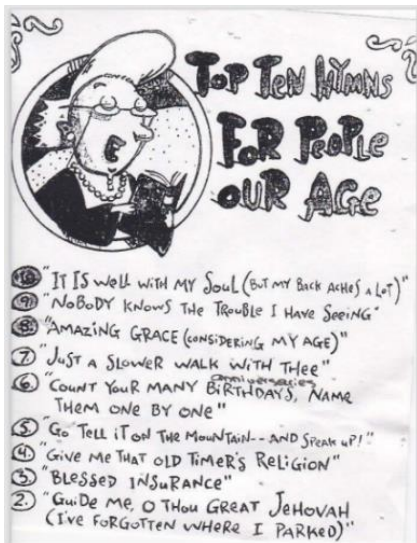 Top Ten Hymns
For People
Our Age
10. "It Is Well with My Soul (But My Back Aches a Lot)"
9. "Nobody Knows the Trouble I Have Seeing"
8. "Amazing Grace (Considering My Age)"
7. "Just a Slower Walk with Thee"
anniversaries
6. "Count Your Many Birthdays, Name
Them One by One"
5. "Go Tell it on the Mountain -- and Speak up!"
4. "Give Me That Old Timer's Religion"
3. "Blessed Insurance"
2. "Guide Me, O Thou Great Jehovah
(I've Forgotten Where I Parked)"